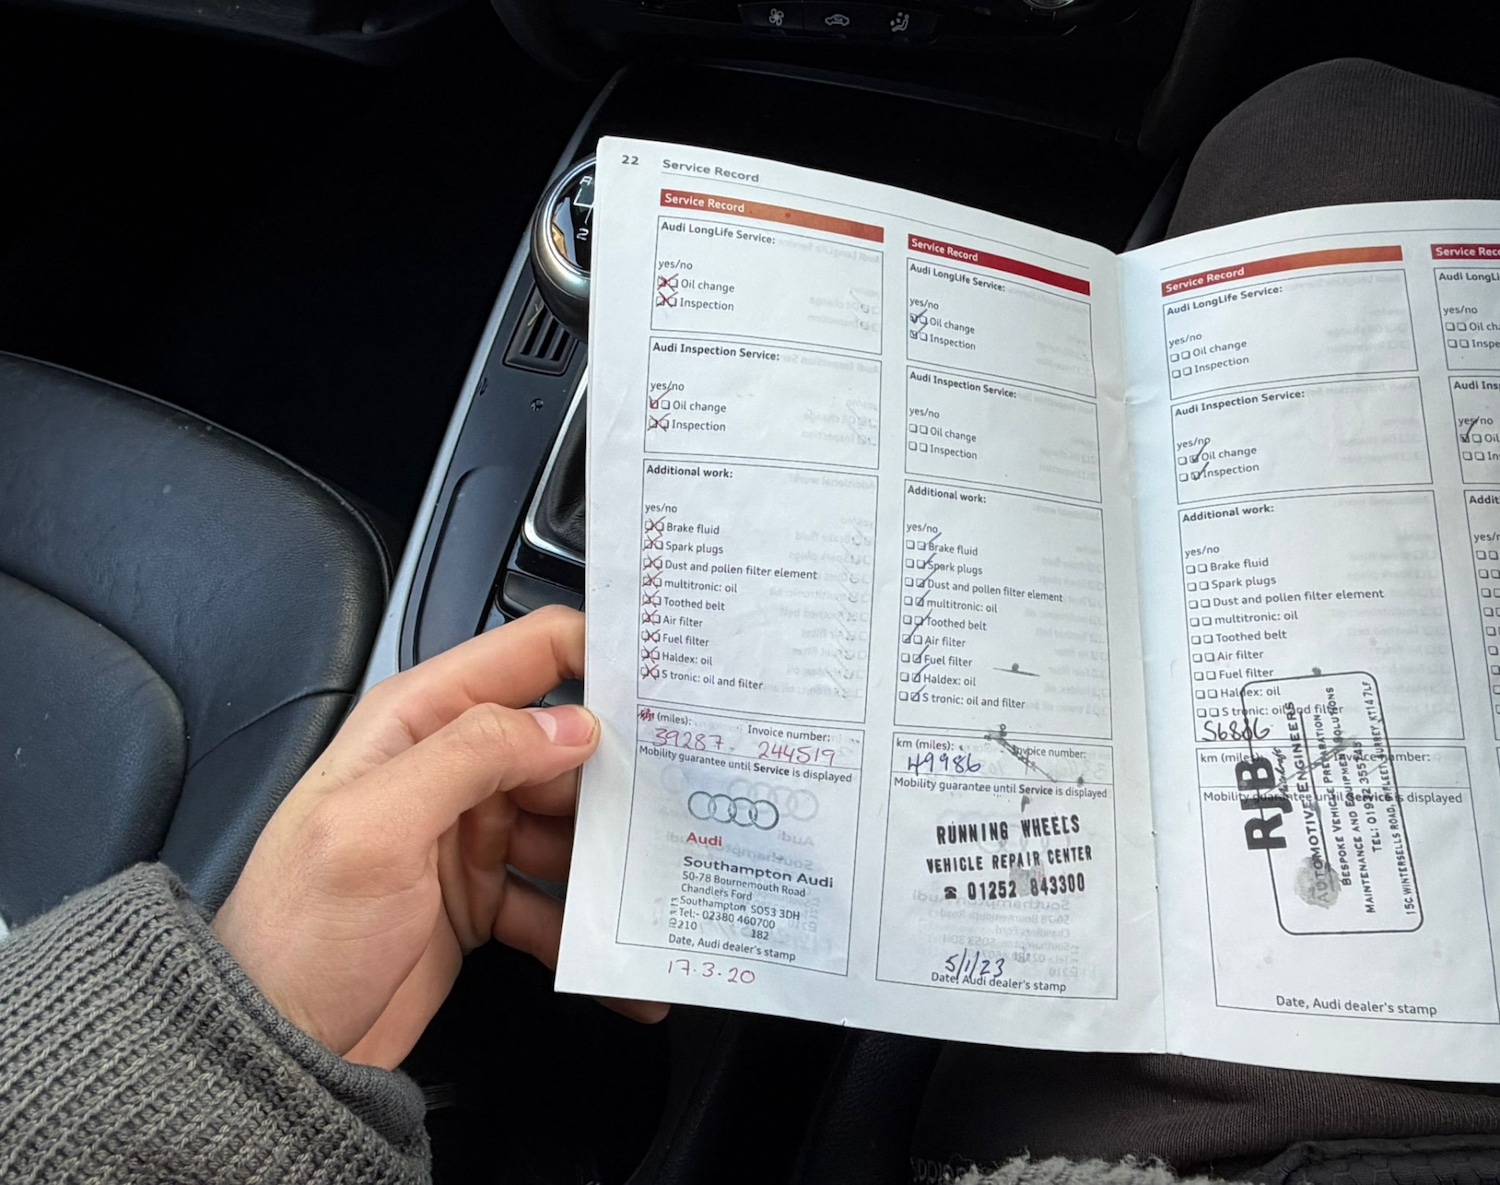 22 Service Record
Service Record
Audi LongLife Service:
yes/no
Oil change
Inspection
Audi Inspection Service:
yes/no
Oil change
Inspection
Additional work:
yes/no
Brake fluid
Spark plugs
Dust and pollen filter element
multitronic: oil
Toothed belt
Air filter
Fuel filter
Haldex: oil
S tronic: oil and filter
(miles): Invoice number:
39287 244519
Mobility guarantee until Service is displayed
Audi
Southampton Audi
50-78 Bournemouth Road
Chandlers Ford
Southampton SO53 3DH
Tel:- 02380 460700
210 182
Date, Audi dealer's stamp
17.3.20
Service Record
Audi LongLife Service:
yes/no
Oil change
Inspection
Audi Inspection Service:
yes/no
Oil change
Inspection
Additional work:
yes/no
Brake fluid
Spark plugs
Dust and pollen filter element
multitronic: oil
Toothed belt
Air filter
Fuel filter
Haldex: oil
S tronic: oil and filter
km (miles): Invoice number:
49986
Mobility guarantee until Service is displayed
RUNNING WHEELS
VEHICLE REPAIR CENTER
☎ 01252 843300
5/1/23
Date, Audi dealer's stamp
Service Record
Audi LongLife Service:
yes/no
Oil change
Inspection
Audi Inspection Service:
yes/no
Oil change
Inspection
Additional work:
yes/no
Brake fluid
Spark plugs
Dust and pollen filter element
multitronic: oil
Toothed belt
Air filter
Fuel filter
Haldex: oil
S tronic: oil and filter
56886
km (miles): Invoice number:
Mobility guarantee until Service is displayed
RJB
AUTOMOTIVE ENGINEERS
BESPOKE VEHICLE PREPARATION
MAINTENANCE AND EQUIPMENT SOLUTIONS
TEL: 01932 355245
15C WINTERSELLS ROAD, BYFLEET, SURREY KT14 7LF
Date, Audi dealer's stamp
Service Rec
Audi LongL
yes/no
Oil ch
Inspe
Audi Ins
yes/no
Oil
In
Addit
yes/
2